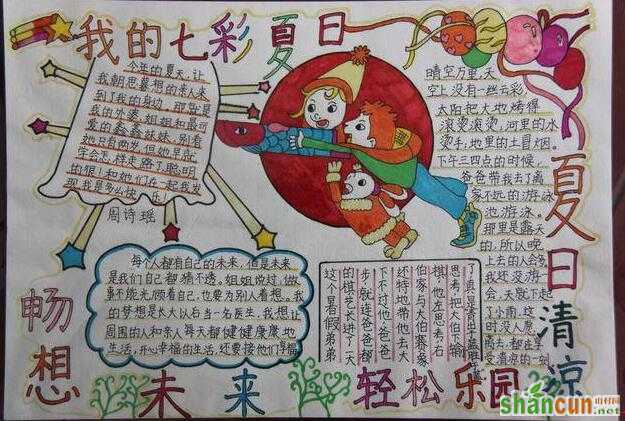 我的七彩夏日
今年的夏天,让
我朝思暮想的未来人
到了我的身边,那就是
我的外婆、姐姐和最可
爱的鑫鑫妹妹,别看
她只有两岁,但她早就
学会怎样走路了,聪明
的很!和她们在一起我发
现我是多么快乐!
周诗瑶
晴空万里,天
空上没有一丝云彩,
太阳把大地烤得
滚烫滚烫,河里的水
烫手,地里的土冒烟。
下午三四点的时候,
爸爸带我去了离
家不远的游泳
池游泳。
那里是露天
的,所以晚
上去的人会多
我还没游
会,天就下起
了小雨,这
时没人愿
离去,都在享
受清凉的一刻
夏日清凉
每个人都有自己的未来,但是未来
是我们自己都猜不透。姐姐说过,做
事不能光顾着自己,也要为别人着想。我
的梦想是长大以后当一名医生,我想让
周围的人和亲人每天都健健康康地
生活,开心幸福的生活,还要接他们享福
思考,把大伯下输
棋,他左思考右
伯家与大伯赛象
还特地带他去大
下不过他,爸爸
步,就连爸爸都
的棋艺长进了一大
这个暑假弟弟
畅想未来
轻松乐园
shancun
山村网
.net